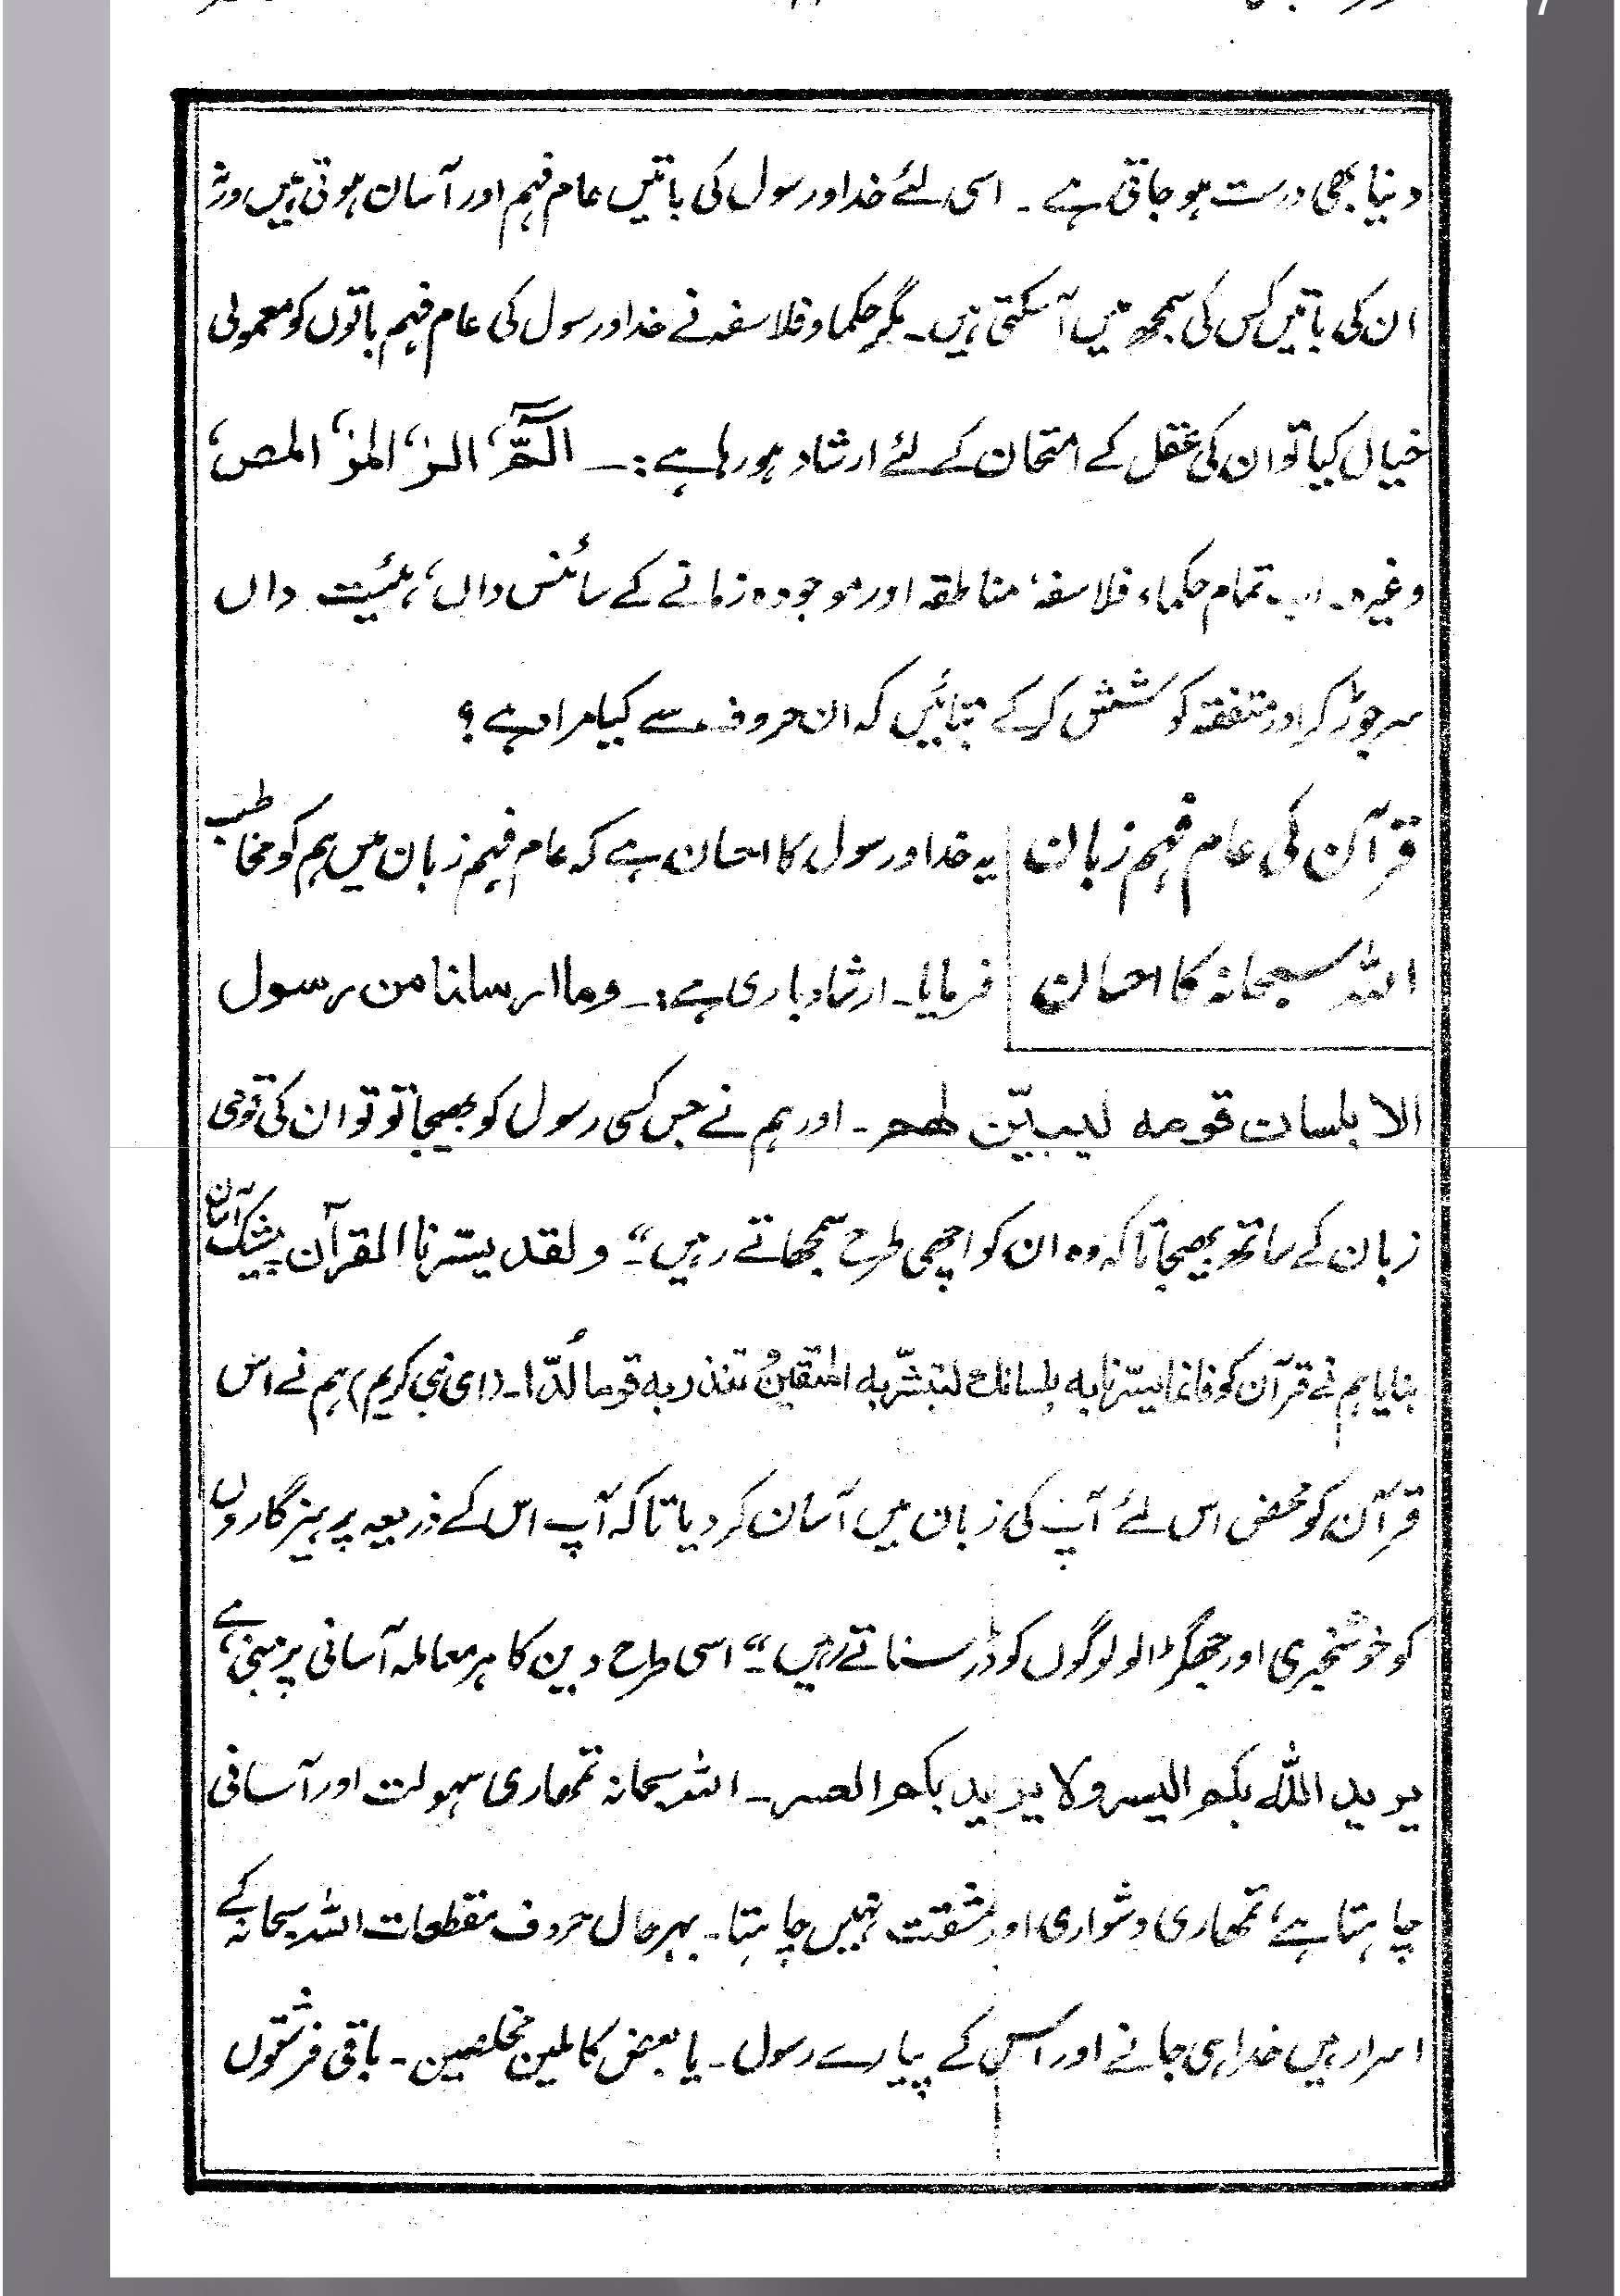 دنیا بھی درست ہو جاتی ہے ۔ اسی لئے خدا ورسول کی باتیں عام فہم اور آسان ہوتی ہیں ورنہ
ان کی باتیں کس کی سمجھ میں آسکتی ہیں ۔ مگر حکما و فلاسفہ نے خدا ورسول کی عام فہم باتوں کو معمولی
خیال کیا تو ان کی عقل کے امتحان کے لئے ارشاد ہو رہا ہے :۔ الٓمّٓ، الرٰ، المرٰ، المص،
وغیرہ ۔ اب تمام حکماء فلاسفہ، مناطقہ اور موجودہ زمانے کے سائنس داں، ہئیت داں
سر جوڑ کر اور متفقہ کوشش کر کے بتائیں کہ ان حروف سے کیا مراد ہے ؟
قرآن کی عام فہم زبان
اللہ سبحانہٗ کا احسان
یہ خدا ورسول کا احسان ہے کہ عام فہم زبان میں ہم کو مخاطب
فرمایا۔ ارشاد باری ہے :۔ وما ارسلنا من رسول
الا بلسان قومه لیبیّن لھم ۔ اور ہم نے جس کسی رسول کو بھیجا تو تو ان کی قومی
زبان کے ساتھ بھیجا تاکہ وہ ان کو اچھی طرح سمجھاتے رہیں ۔“ ولقد یسّرنا القرآن بیشک آسان
بنایا ہم نے قرآن کو فانما یسّرنا به بلسانك لتبشّر به المتقین و تنذر به قوما لُدّا ۔ (ای نبی کریم) ہم نے اس
قرآن کو محض اس لئے آپ کی زبان میں آسان کر دیا تاکہ آپ اس کے ذریعہ پرہیزگاروں
کو خوشخبری اور جھگڑالو لوگوں کو ڈر سناتے رہیں ۔“ اسی طرح دین کا ہر معاملہ آسانی پر مبنی ہے،
یرید اللہ بکم الیسر ولا یرید بکم العسر ۔ اللہ سبحانہ تمھاری سہولت اور آسانی
چاہتا ہے، تمھاری دشواری اور مشقت نہیں چاہتا ۔ بہر حال حروف مقطعات اللہ سبحانہ کے
اسرار ہیں خدا ہی جانے اور اس کے پیارے رسول ۔ یا بعض کاملین مخلصین ۔ باقی فرشتوں